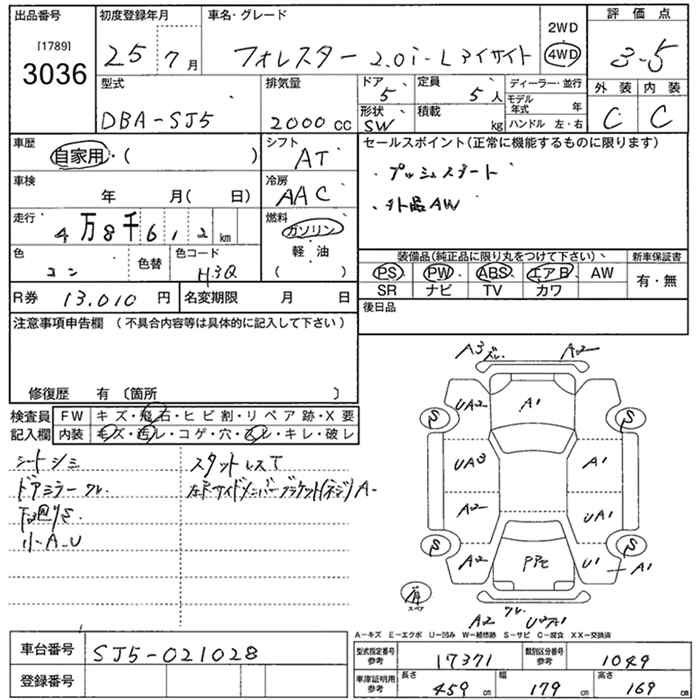 出品番号
[1789]
3036
初度登録年月
25 7月
車名・グレード
フォレスター 2.0i-L アイサイト
2WD
4WD
評価点
3-5
外装 内装
C C
型式
DBA-SJ5
排気量
2000cc
ドア
5
定員
5人
ディーラー・並行
モデル年式 年
ハンドル 左・右
形状
SW
積載
kg
車歴
自家用・( )
シフト
AT
車検
年 月( 日)
冷房
AAC
走行
4万8千612km
燃料
ガソリン
軽油
( )
色
コン
色替
色コード
H3Q
R券 13,010円
名変期限 月 日
セールスポイント(正常に機能するものに限ります)
・プッシュスタート
・外品AW
装備品(純正品に限り丸をつけて下さい)
PS PW ABS エアB AW
SR ナビ TV カワ
新車保証書
有・無
後日品
注意事項申告欄(不具合内容等は具体的に記入して下さい)
修復歴 有〔箇所 〕
検査員記入欄
FW キズ・飛石・ヒビ割・リペア跡・X要
内装 キズ・汚レ・コゲ・穴・スレ・キレ・破レ
シートシミ
ドアミラー ワレ
下廻りS
小-A-U
スタットレスT
A2
UA2 A1
S S
UA3 A1
A2 UA1
S S
A2 U1 A1
有
スペア
A2 ワレ
A-キズ E-エクボ U-凹み W-補修跡 S-サビ C-腐食 XX-交換済
車台番号
SJ5-021028
登録番号
型式指定番号
参考
17371
類別区分番号
参考
1049
車庫証明用
参考
長さ
459cm
幅
179cm
高さ
169cm